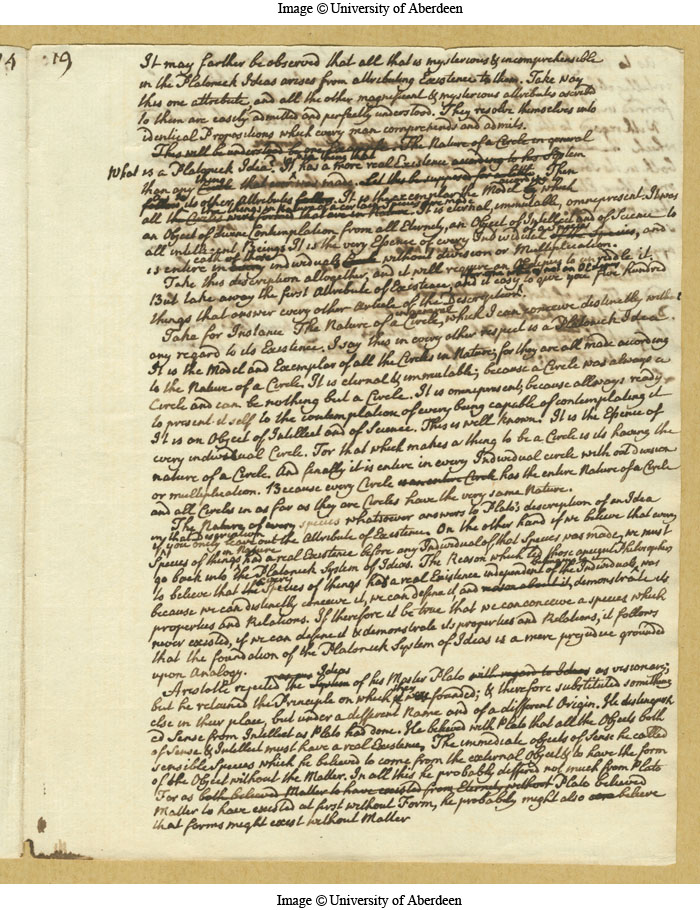 Image © University of Aberdeen
19
It may farther be observed that all that is mysterious & incomprehensible
in the Platonick Ideas arises from attributing Existence to them. Take away
this one attribute, and all the other magnificent & mysterious attributes ascribed
to them are easily admitted and perfectly understood. They resolve themselves into
identical Propositions which every man comprehends and admits.
This will be understood by one Example the Nature of a Circle in general
What is a Platonick Idea? It has a more real Existence according to his System
than any thing that ever was made. Let this be supposed Then
its other Attributes follow. It is the exemplar the Model by which
all the Circles were formed that are in Nature. It is eternal, immutable, omnipresent. It was
an Object of divine Contemplation from all Eternity, an Object of Intellect and of Science to
all intelligent Beings. It is the very Essence of every Individual of the Species, and
is entire in each of those individuals without division or Multiplication.
Take this description altogether, and it will require an Œdipus to unriddle it.
But take away the first Attribute of Existence, and it is easy to give you five hundred
things that answer every other Article of the Description.
Take for Instance The Nature of a Circle, which I can conceive distinctly without
any regard to its Existence. I say this in every other respect is a Platonick Idea.
It is the Model and Exemplar of all the Circles in Nature; for they are all made according
to the Nature of a Circle. It is eternal & immutable; because a Circle was always a
Circle and can be nothing but a Circle. It is omnipresent, because allways ready
to present it self to the contemplation of every being capable of contemplating it
It is an Object of Intellect and of Science. This is well known. It is the Essence of
every individual Circle. For that which makes a thing to be a Circle is its having the
nature of a Circle. And finally it is entire in every Individual circle without division
or multiplication. Because every Circle is an entire Circle has the entire Nature of a Circle
and all Circles in as far as they are Circles have the very same Nature.
The Nature of every species whatsoever answers to Plato's description of an Idea
if you only leave out the Attribute of Existence. On the other hand if we believe that every
Species of things in Nature had a real Existence before any Individual of that Species was made, we must
go back into the Platonick System of Ideas. The Reason which led those ancient Philosophers
to believe that the Species of things had a real Existence independent of the Individuals, was
because we can distinctly conceive it, we can define it and reason about it, demonstrate its
properties and Relations. If therefore it be true that we can conceive a species which
never existed, if we can define it & demonstrate its properties and Relations, it follows
that the foundation of the Platonick System of Ideas is a mere prejudice grounded
upon Analogy.
Aristotle rejected the Ideas System of his Master Plato with regard to Ideas as visionary;
but he retained the Principle on which they founded; & therefore substituted something
else in their place, but under a different Name and of a different Origin. He distinguish
ed Sense from Intellect as Plato had done. He believed with Plato that all the Objects both
of Sense & Intellect must have a real Existence. The immediate objects of Sense he called
sensible species which he believed to come from the external Object & to have the form
of the Object without the Matter. In all this he probably differed not much from Plato
For as both believed Matter to have existed from Eternity without Plato believed
Matter to have existed at first without Form, he probably might also believe
that forms might exist without Matter
Image © University of Aberdeen